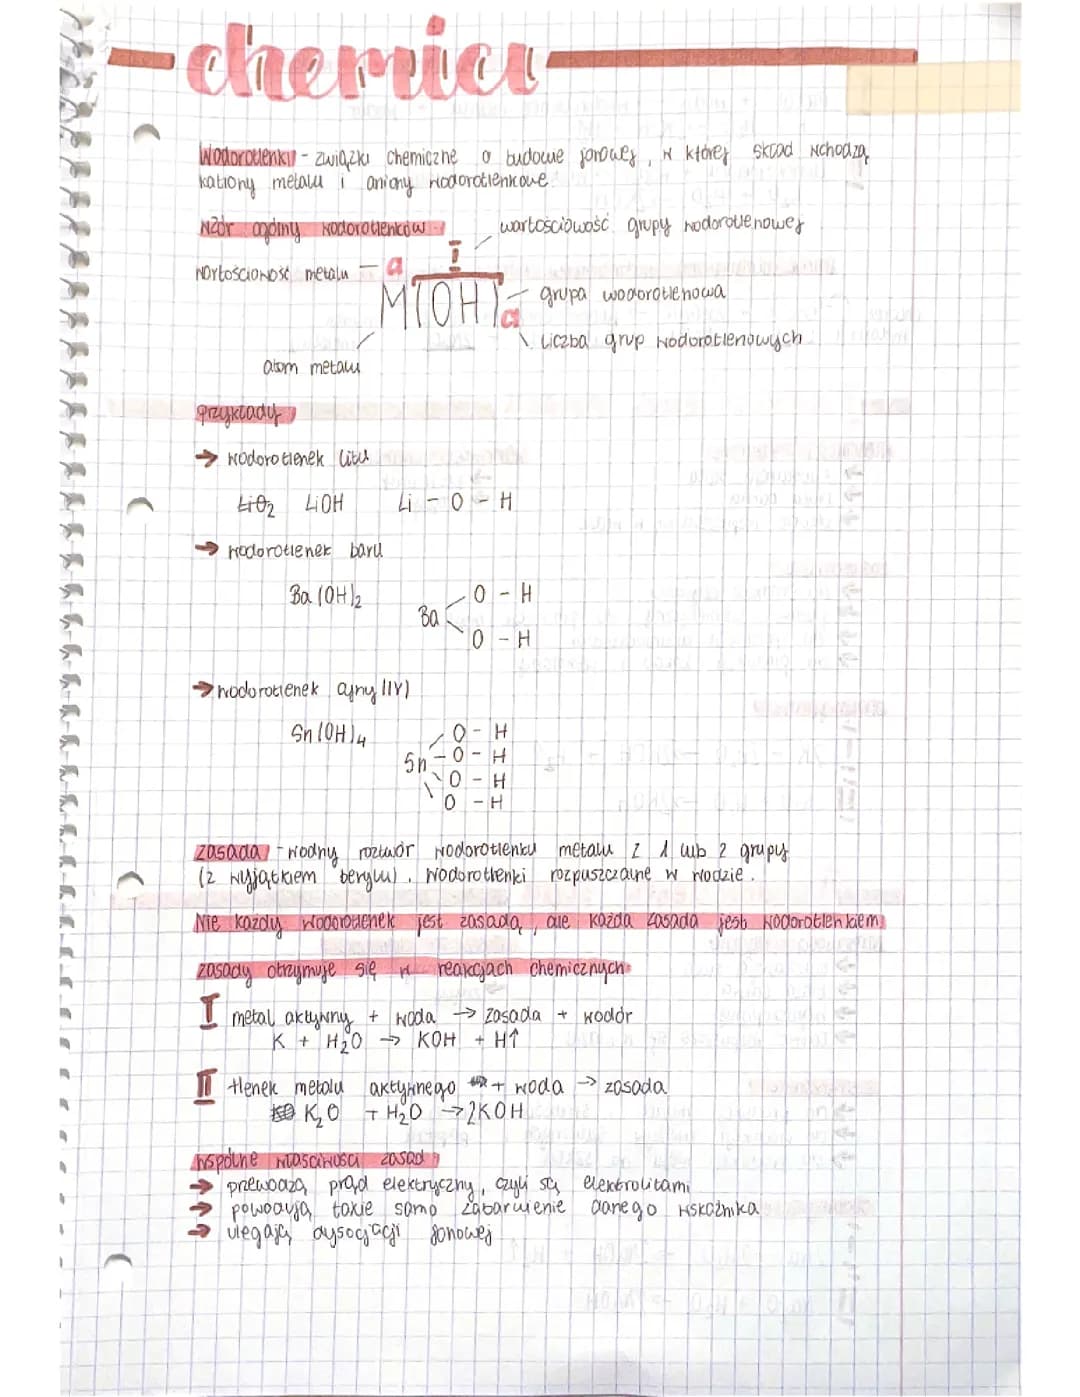 chemia
Wodorotlenki - związki chemiczne o budowie jonowej, w której skład wchodzą
kationy metalu i aniony wodorotlenkowe.
Wzór ogólny wodorotlenków
wartościowość grupy wodorotlenowej
I
wartościowość metalu
a
M(OH)a
grupa wodorotlenowa
liczba grup wodorotlenowych
atom metalu
przykłady
→ wodorotlenek litu
LiO₂ LiOH Li - O - H
→ wodorotlenek baru
Ba(OH)₂
O - H
Ba
O - H
→ wodorotlenek cyny (IV)
Sn(OH)₄
O - H
Sn - O - H
O - H
O - H
zasada - wodny roztwór wodorotlenku metalu z 1 lub 2 grupy
(z wyjątkiem berylu). Wodorotlenki rozpuszczalne w wodzie.
Nie każdy wodorotlenek jest zasadą, ale każda zasada jest wodorotlenkiem
zasady otrzymuje się w reakcjach chemicznych:
I metal aktywny + woda → zasada + wodór
K + H₂O → KOH + H↑
II tlenek metalu aktywnego + woda → zasada
K₂O + H₂O → 2KOH
wspólne właściwości zasad
→ przewodzą prąd elektryczny, czyli są elektrolitami
→ powodują takie samo zabarwienie danego wskaźnika
→ ulegają dysocjacji jonowej